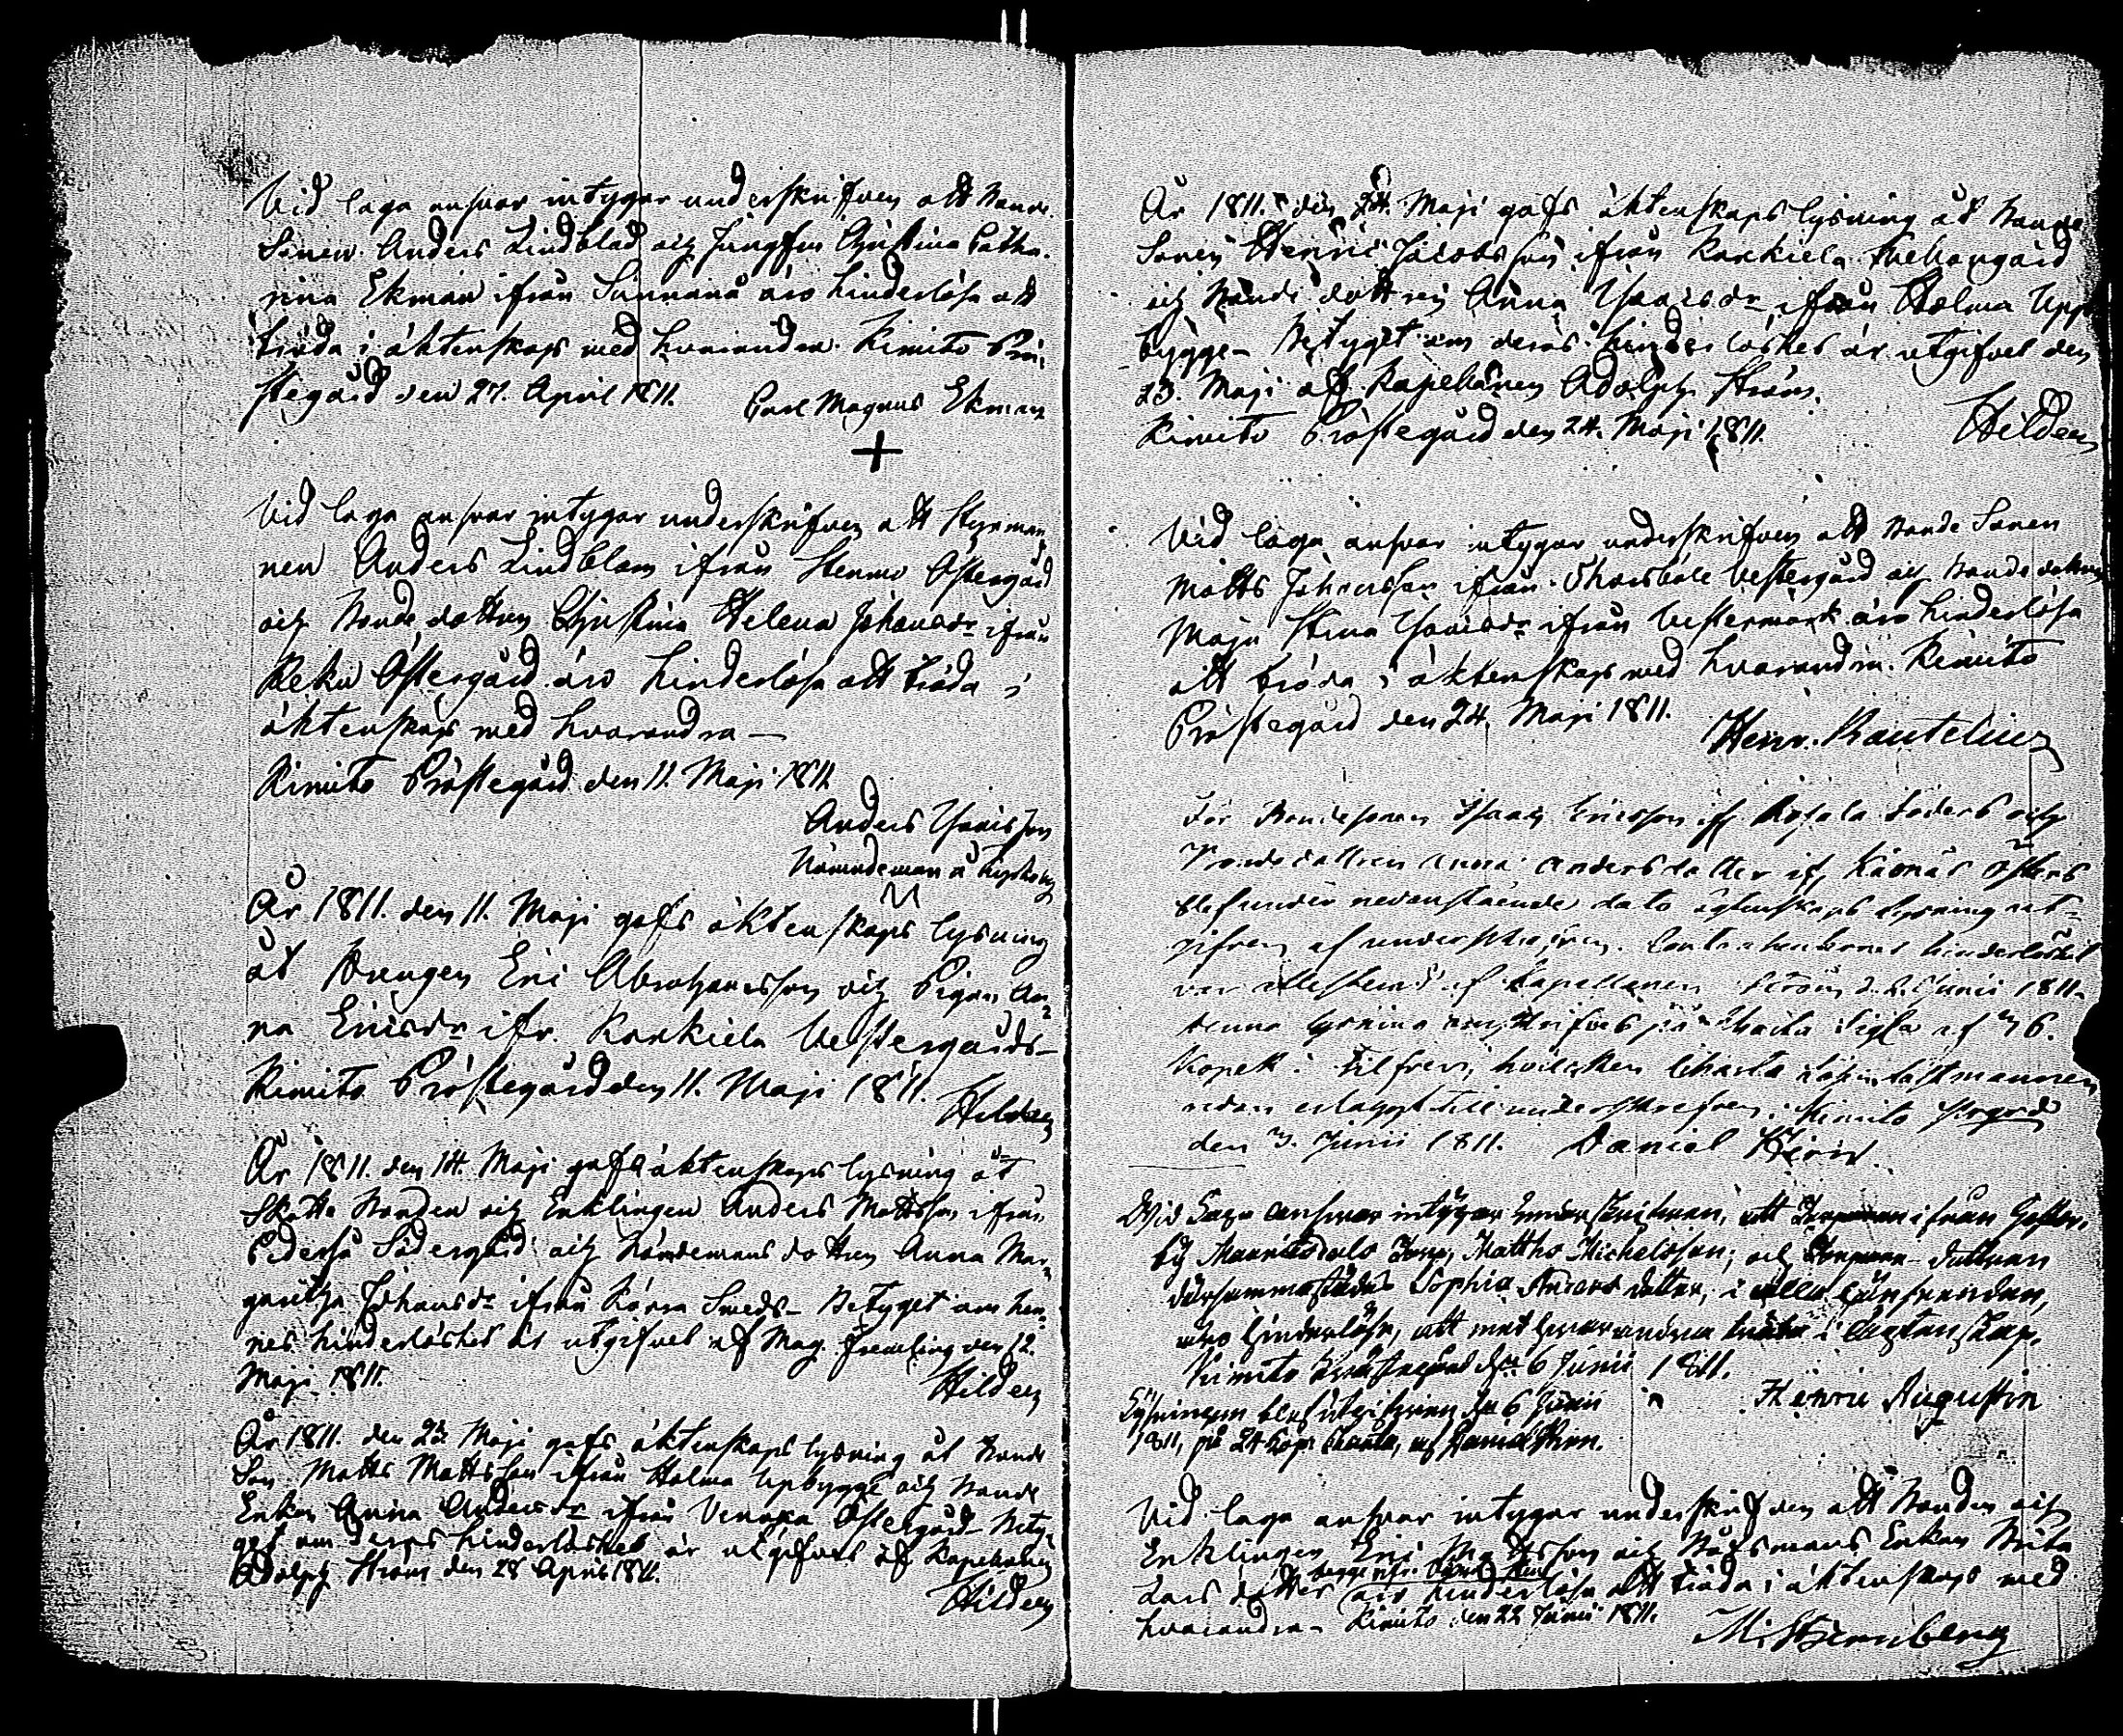 Vid laga answar intygar underskrifven att Bonde
Sonen Anders Lindblad och Jungfru Christina Catha-
rina Ekman ifrån Sunnanå äro hinderlösa att
träda i äktenskap med hvarandra. Kimito Prä-
stegård den 27. April 1811. Carl Magnus Ekman
+
Vid laga answar intygar underskrifven att Styrman
nen Anders Lindblom ifrån Stenmo Östergård
och Bonde dottren Christina Helena Johansdr ifrån
Reku Östergård äro hinderlösa att träda i
äktenskap med hvarandra —
Kimito Prästegård den 11. Maji 1811.
Anders Isaacsson
Nämndeman
År 1811. den 11. Maji gafs äktenskaps lysning
åt Drengen Eric Abrahamsson och Pigan An-
na Ericsdr ifr. Karkiela Vestergårds —
Kimito Prästegård den 11. Maji 1811. Hilden
År 1811. den 14. Maji gafs äktenskaps lysning åt
Skatte Bonden och Enklingen Anders Mattsson ifrån
Pederså Södergård och Nämdemans dottren Anna Mar-
garetha Johansdr ifrån Rårra Sweds — Betyget om hen-
nes hinderlöshet är utgifvet af Mag. Fremling den 12.
Maji 1811. Hilden
År 1811. den 23. Maji gafs äktenskaps lysning åt Bonde
Son Matts Mattsson ifrån Holma Upbygge och Bonde
Enkan Anna Andersdr ifrån Venoxa Östergård — Bety-
get om deras hinderlöshet är utgifvet af Kapellanen
Adolph Ström den 28 April 1811.
Hilden
År 1811. den 24. Maji gafs äktenskaps lysning åt Bonde
Sonen Henric Jacobsson ifrån Karkiela Mellangård
och Bonde dottren Anna Isaacsdr ifrån Holma Upp-
bygge — Betyget om deras hinderlöshet är utgifvet den
23. Maji af Kapellanen Adolph Ström.
Kimito Prästegård den 24. Maji 1811. Hilden
Vid laga answar intygar underskrifven att Bonde Sonen
Matts Johansson ifrån Vestergård och Bonde dottren
Maja Stina Isaacsdr ifrån Vestermark äro hinderlösa
att träda i äktenskap med hvarandra. Kimito
Prästegård den 24. Maji 1811.
Henr. Rautelius
För Bondesonen Isaac Ericsson if. Rosala Söders och
Bondedottren Anna Andersdotter if. Kasnäs Östers
blef under nedanstående dato ägtenskaps lysning ut-
gifven af underskrefven. Contrahenternes hinderlöshet
var attesterad af Kapellanen Ström d. 2. Junii 1811.
denna lysning utskrifves på Charta Sigill. af 36.
Kopek. Silfver, hvilken Charta
redan erlagt till underskrefven. Kimito Pregrd
den 3. Junii 1811. Daniel Hjerd.
Wid Laga answar intygar underskrifwen, att ifrån
by Son, Matths Michelsson; och dottren
därsammastädes Sophia Anders dotter, i alla
äro hinderlöse, att med hwarandra träda i ägtenskap.
Kimito Prästegård den 6 Junii 1811.
Henric Augustin
Lysningen blef utgifwen den 6 Junii
1811, på 24 Kop: Charta, af
Vid laga answar intygar underskrifven att Bonden och
Enklingen Eric Mattsson och Båtsmans Enkan Brita
Lars dotter begge ifr. äro hinderlösa att träda i äktenskap med
hvarandra — Kimito den 22 Junii 1811.
M. Stjernberg